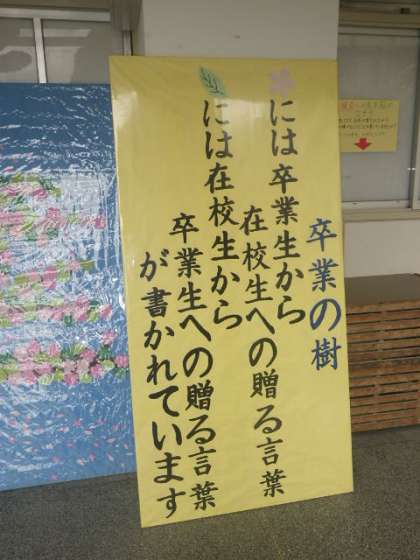 卒業の樹
には卒業生から
在校生への贈る言葉
には在校生から
卒業生への贈る言葉
が書かれています